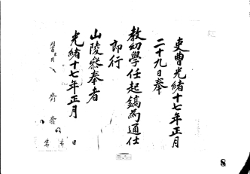 吏曹光緒十七年正月
二十九日奉
教幼學任起鎬為通仕
郎行
山陵參奉者
光緒十七年正月 日